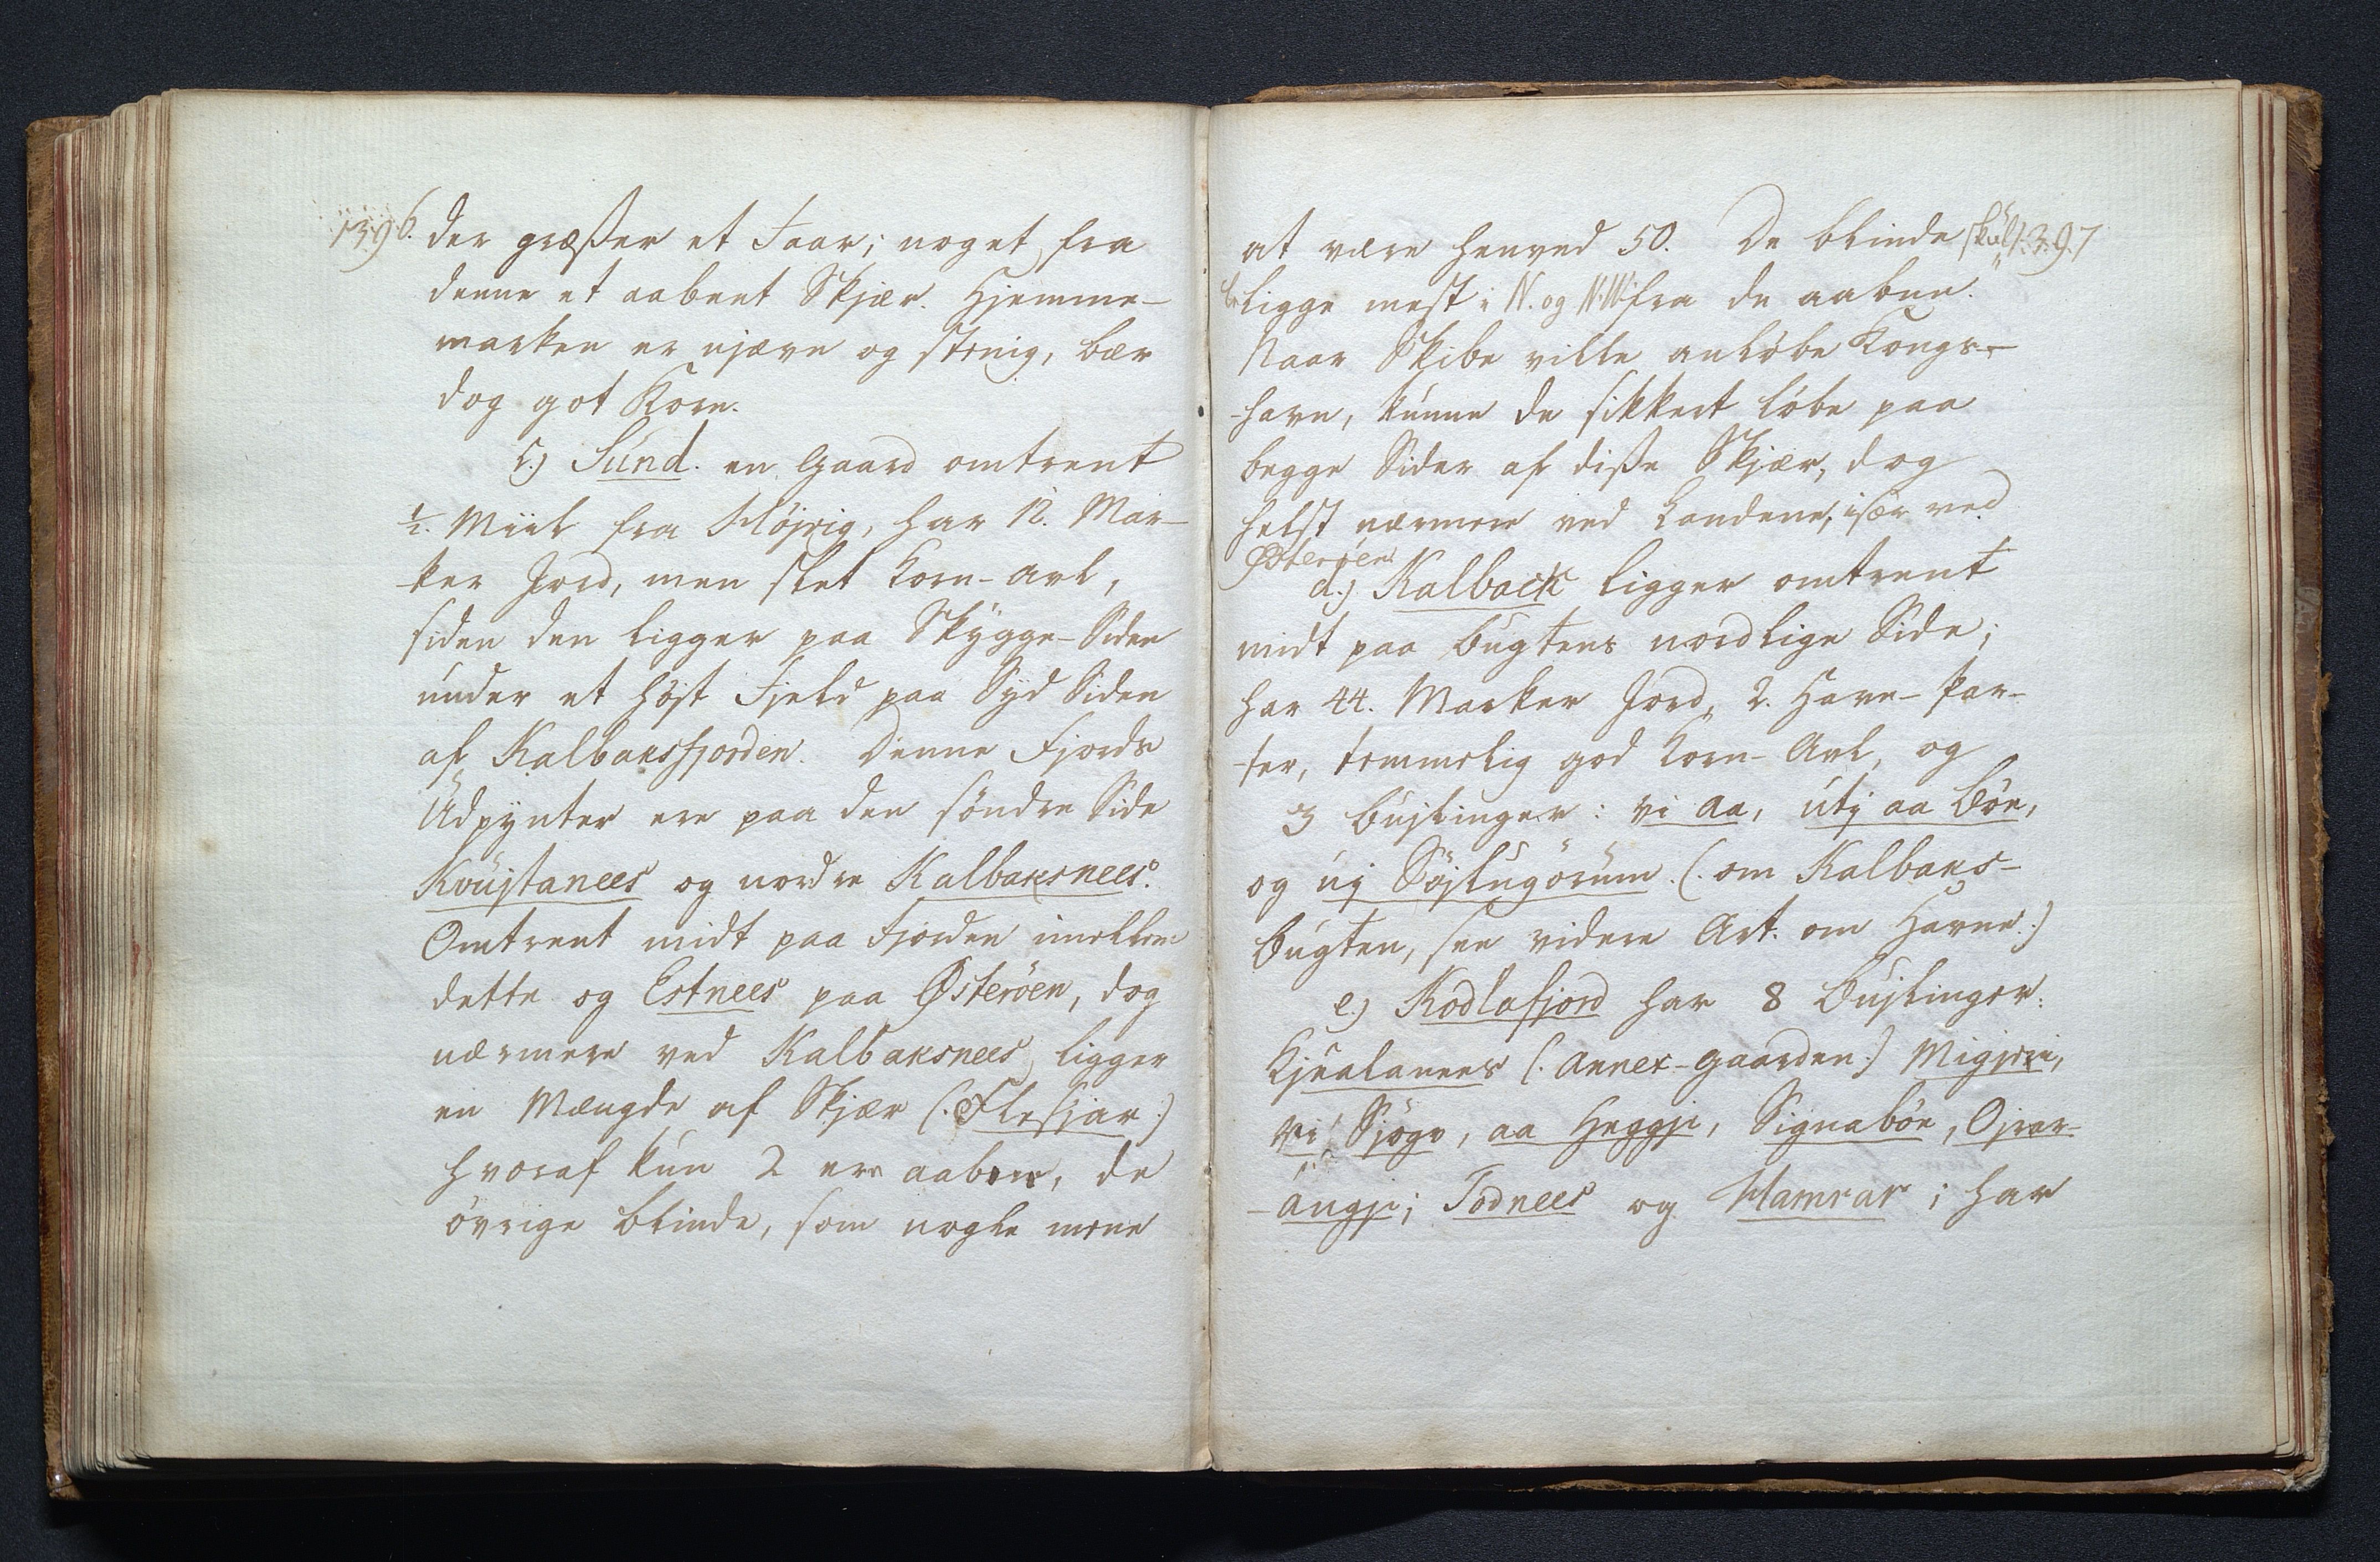 1396. der græßer et Faar; noget fra
denne et aabent Skjær. Hjemme-
marken er ujævn og stenig, bær
dog got Korn.
c.) Sund. en Gaard omtrent
½. Miil fra Höjvig, har 12. Mar-
ker Jord, men slet Korn-avl,
siden den ligger paa Skygge-Siden
under et höjt Fjeld paa Syd Siden
af Kalbaksfjorden. Denne Fjords
Udpynter ere paa den söndre Side
Kvujtanees og nordre Kalbaksnees.
Omtrent midt paa Fjorden imellem
dette og Estnees paa Österöen, dog
nærmere ved Kalbaksnees, ligger
en Mængde af Skjær (: Flesjar :)
hvoraf kun 2 ere aabne, de
övrige blinde, som nogle mene
at være henved 50. De blinde skul- 1397
le ligge mest i N. og N.W. fra de aabne.
Naar Skibe ville anlöbe Kongs-
havn, kunne de sikkert löbe paa
begge Sider af diße Skjær, dog
helst nærmere ved Landene, især ved
Österöen.
d.) Kalback ligger omtrent
midt paa Bugtens nordlige Side;
har 44. Marker Jord, 2. Have-par-
ter, temmelig god Korn-Avl, og
3 Bujlinger: vi Aa, utj aa Böe,
og uj Söjlugörum. (: om Kalbaks-
Bugten, see videre Art. om Havne :)
e.) Kodlafjord har 8 Bujlinger:
Kjealanees (: Annex-Gaarden :) Migjeri,
vi Sjögv, aa Heggji, Signaböe, Ojrar-
-ängji; Todnees og Hamrar; har